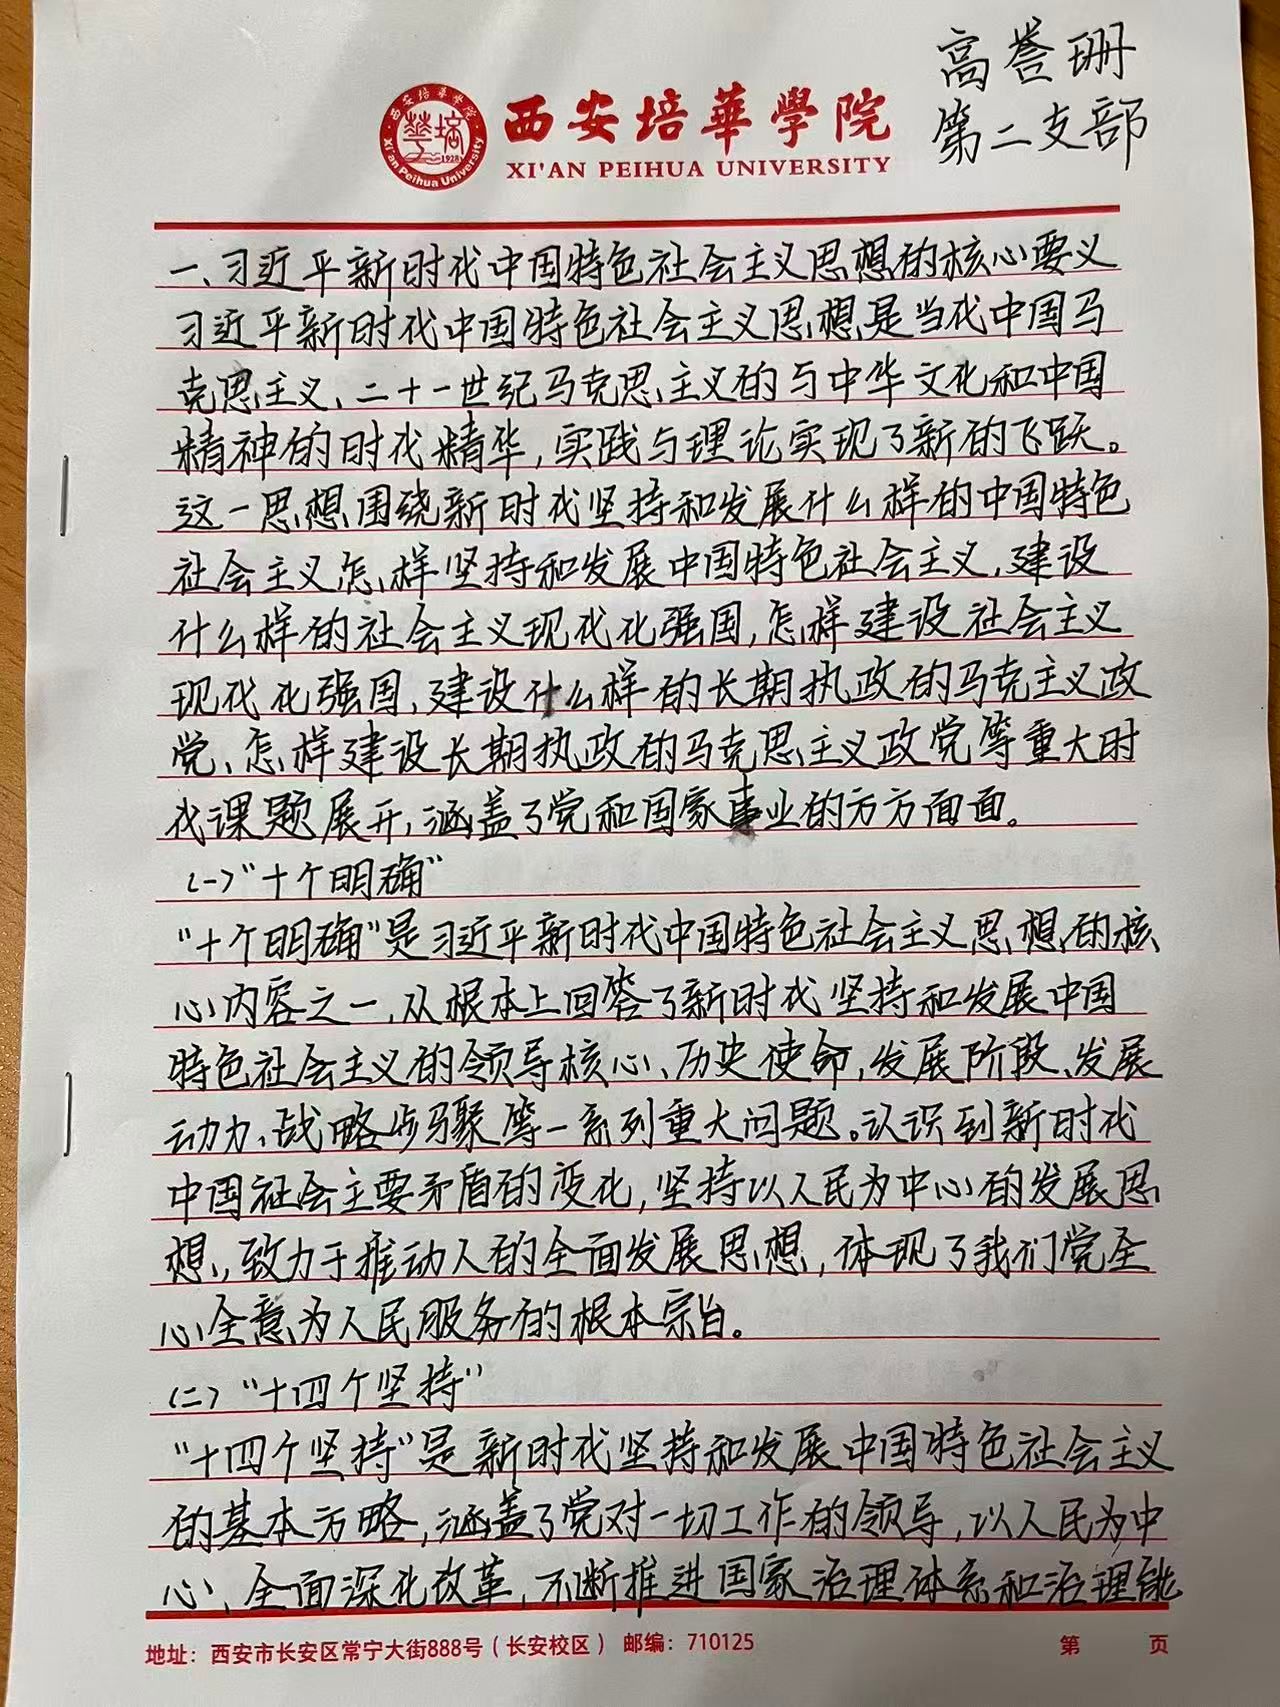 高誉珊
第二支部
西安培華學院
XI'AN PEIHUA UNIVERSITY
西安培華學院
華培
1928
Xi'an Peihua University
一、习近平新时代中国特色社会主义思想的核心要义
习近平新时代中国特色社会主义思想是当代中国马
克思主义、二十一世纪马克思主义的与中华文化和中国
精神的时代精华,实践与理论实现了新的飞跃。
这一思想围绕新时代坚持和发展什么样的中国特色
社会主义怎样坚持和发展中国特色社会主义,建设
什么样的社会主义现代化强国,怎样建设社会主义
现代化强国,建设什么样的长期执政的马克主义政
党、怎样建设长期执政的马克思主义政党等重大时
代课题展开,涵盖了党和国家事业的方方面面。
(一)“十个明确”
“十个明确”是习近平新时代中国特色社会主义思想的核
心内容之一,从根本上回答了新时代坚持和发展中国
特色社会主义的领导核心、历史使命,发展阶段、发展
动力、战略步骤等一系列重大问题。认识到新时代
中国社会主要矛盾的变化,坚持以人民为中心的发展思
想,致力于推动人的全面发展思想,体现了我们党全
心全意为人民服务的根本宗旨。
(二)“十四个坚持”
“十四个坚持”是新时代坚持和发展中国特色社会主义
的基本方略,涵盖了党对一切工作的领导,以人民为中
心、全面深化改革,不断推进国家治理体系和治理能
地址：西安市长安区常宁大街888号（长安校区） 邮编：710125 第 页